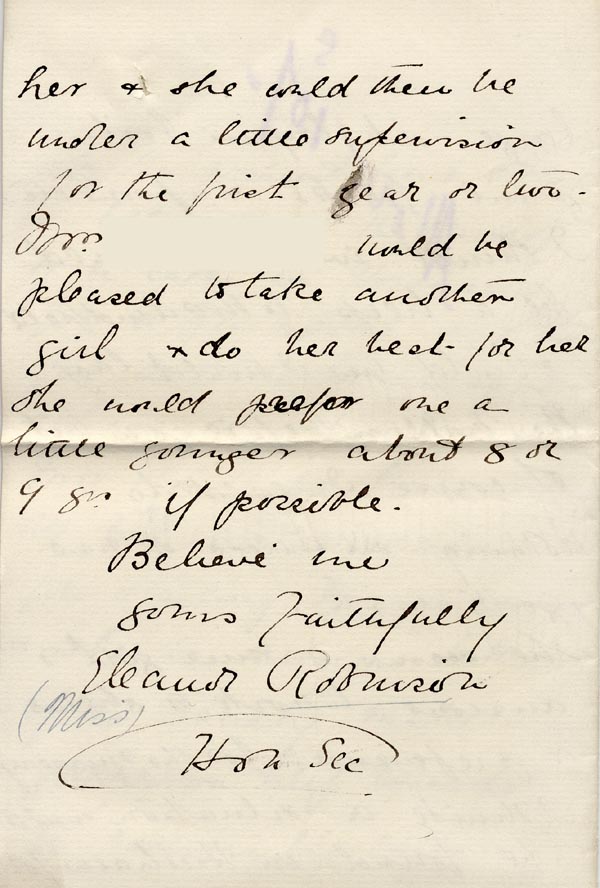 her & she could then be
under a little supervision
for the first year or two.
Mrs would be
pleased to take another
girl & do her best for her
she would prefer one a
little younger about 8 or
9 yrs if possible.
Believe me
yours faithfully
Eleanor Robinson
(Miss)
Hon Sec